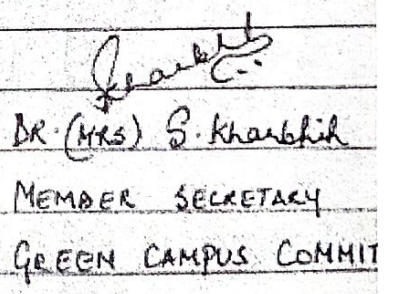 DR. (MRS) S. Kharbhih
MEMBER SECRETARY
GREEN CAMPUS COMMIT